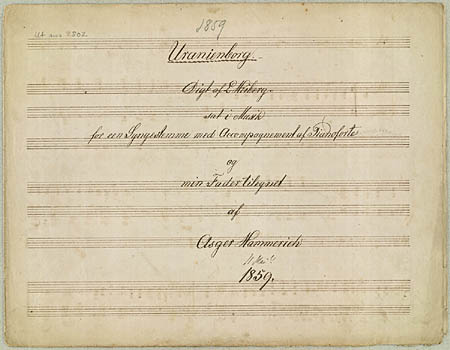 1859
Uranienborg.
Digt af L Heiberg.
sat i Musik
for een Syngestemme med Accompagnement af Pianoforte
og
min Fader tilegnet
af
Asger Hammerich
1859.